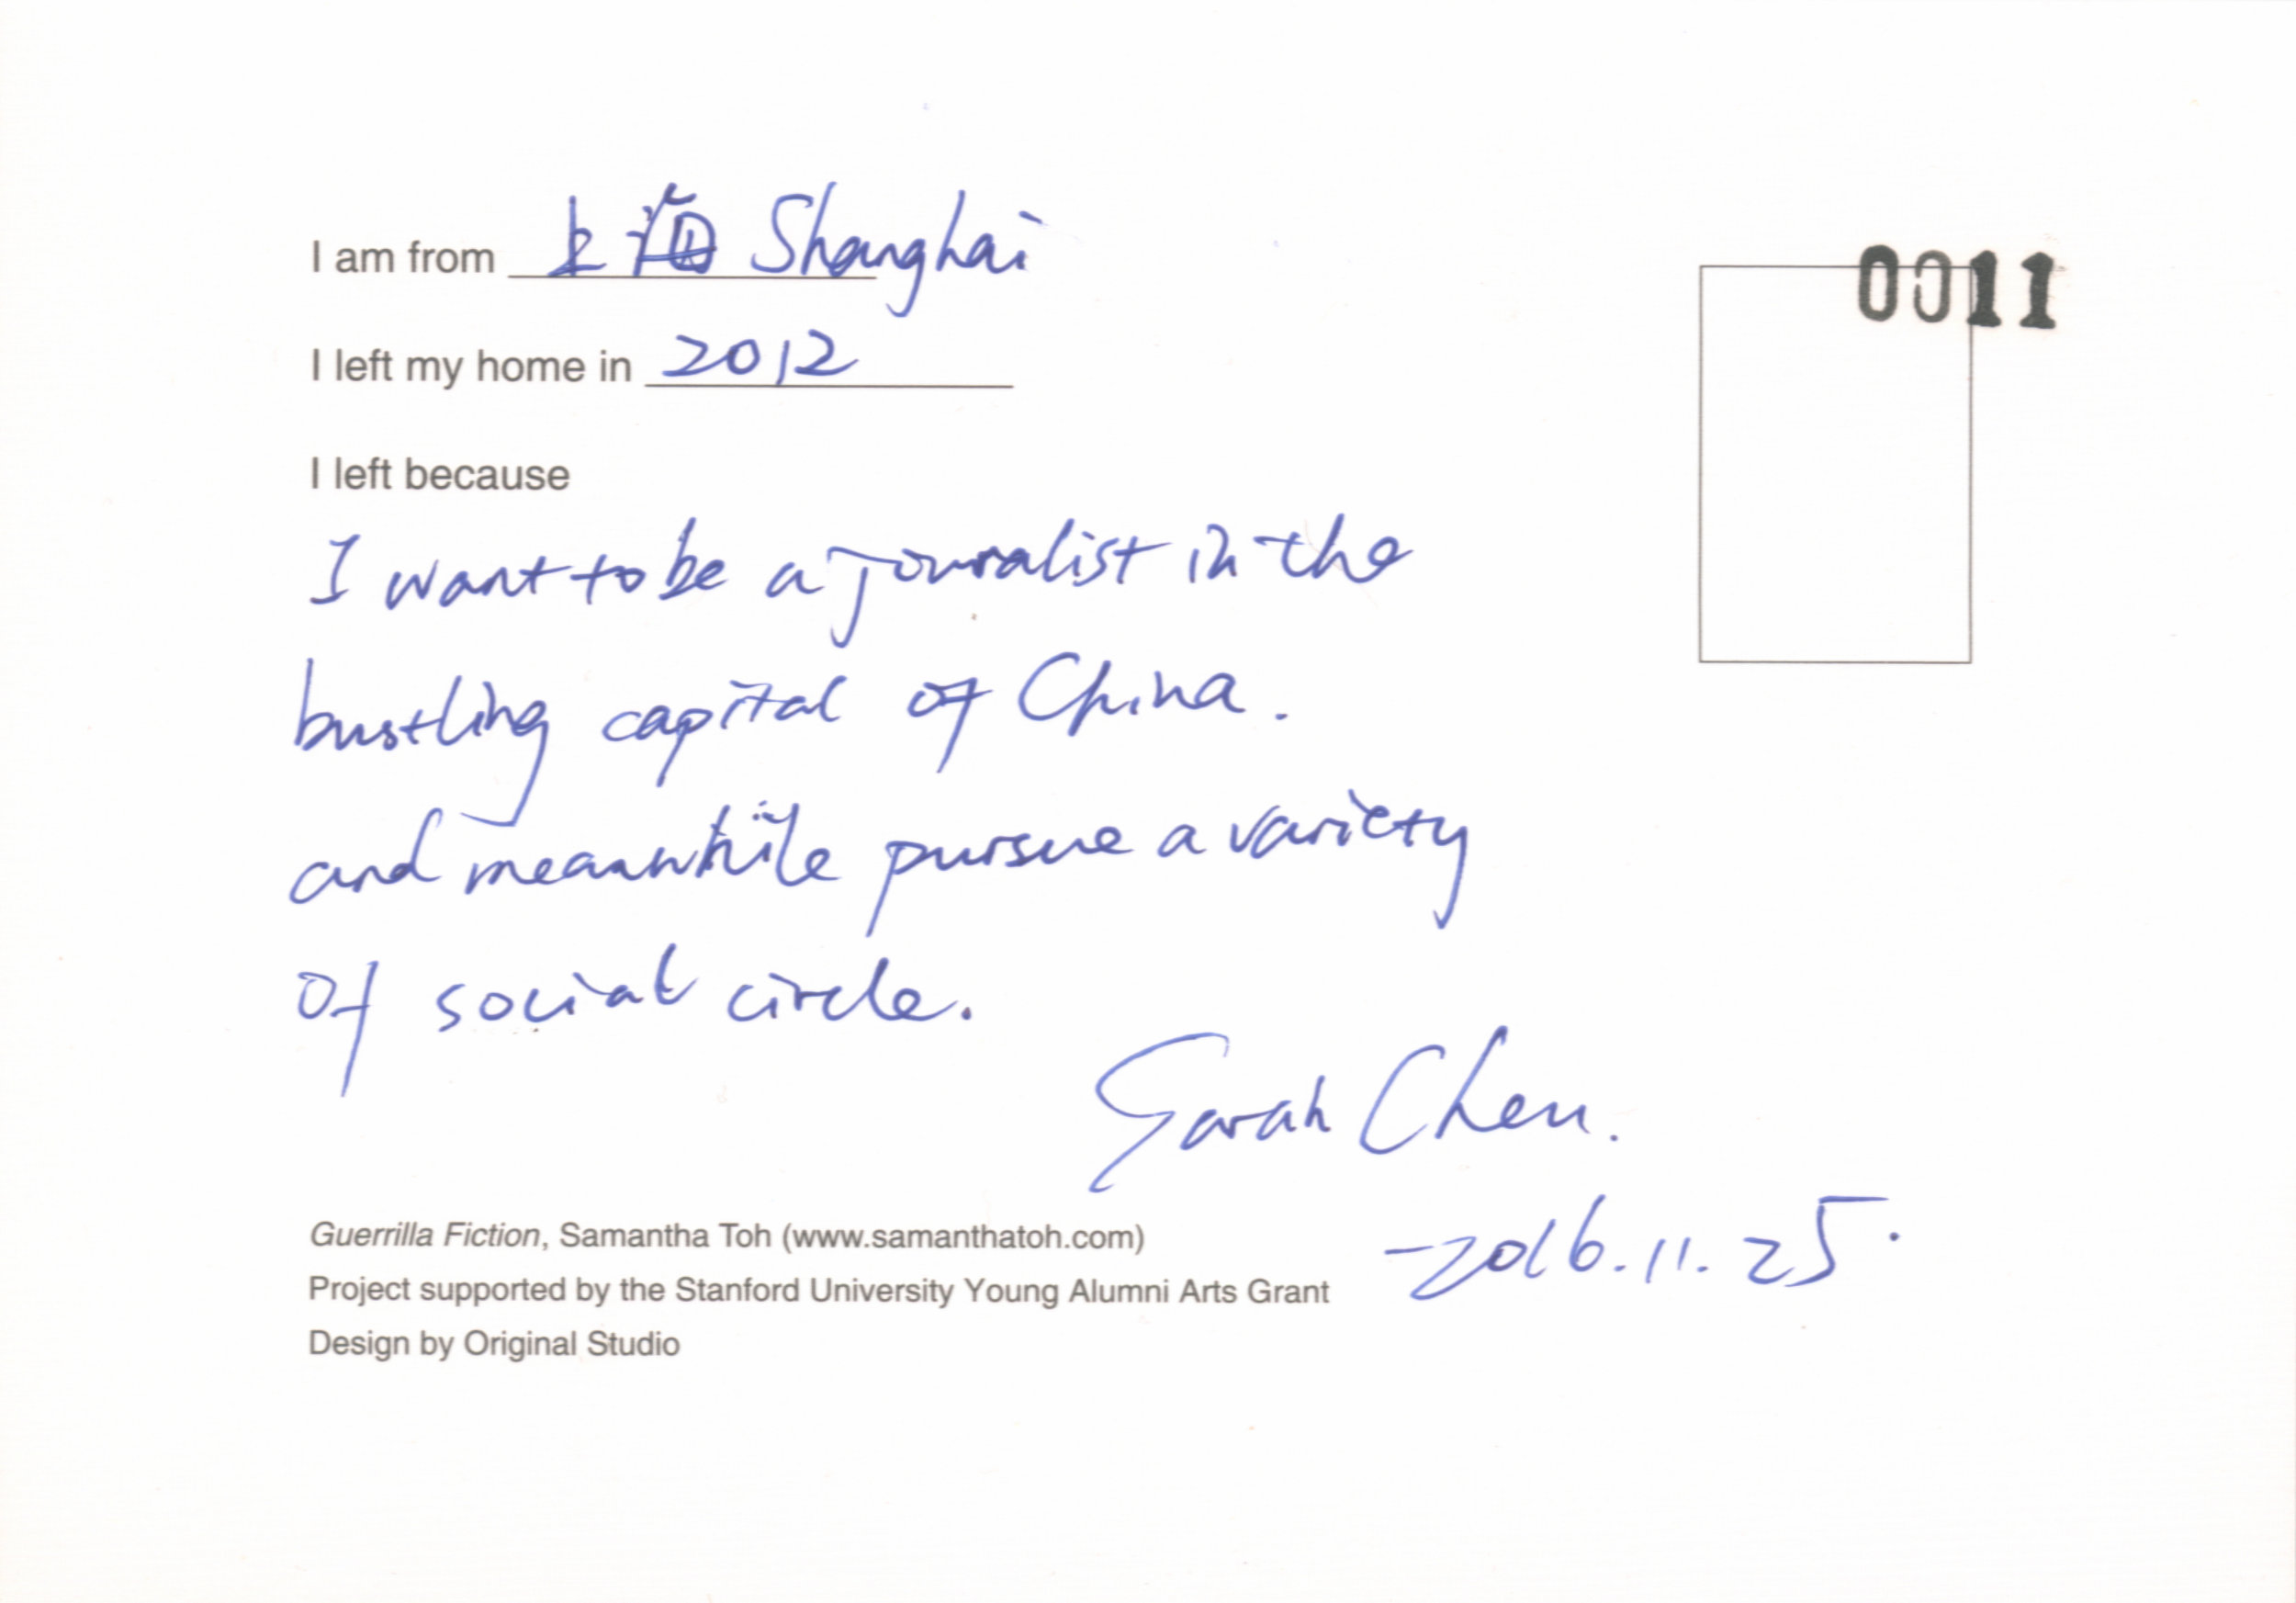 I am from 上海 Shanghai
0011
I left my home in 2012
I left because
I want to be a jouralist in the
bustling capital of China.
and meanwhile pursue a variety
of social circle.
Sarah Chen.
-2016.11.25.
Guerrilla Fiction, Samantha Toh (www.samanthatoh.com)
Project supported by the Stanford University Young Alumni Arts Grant
Design by Original Studio